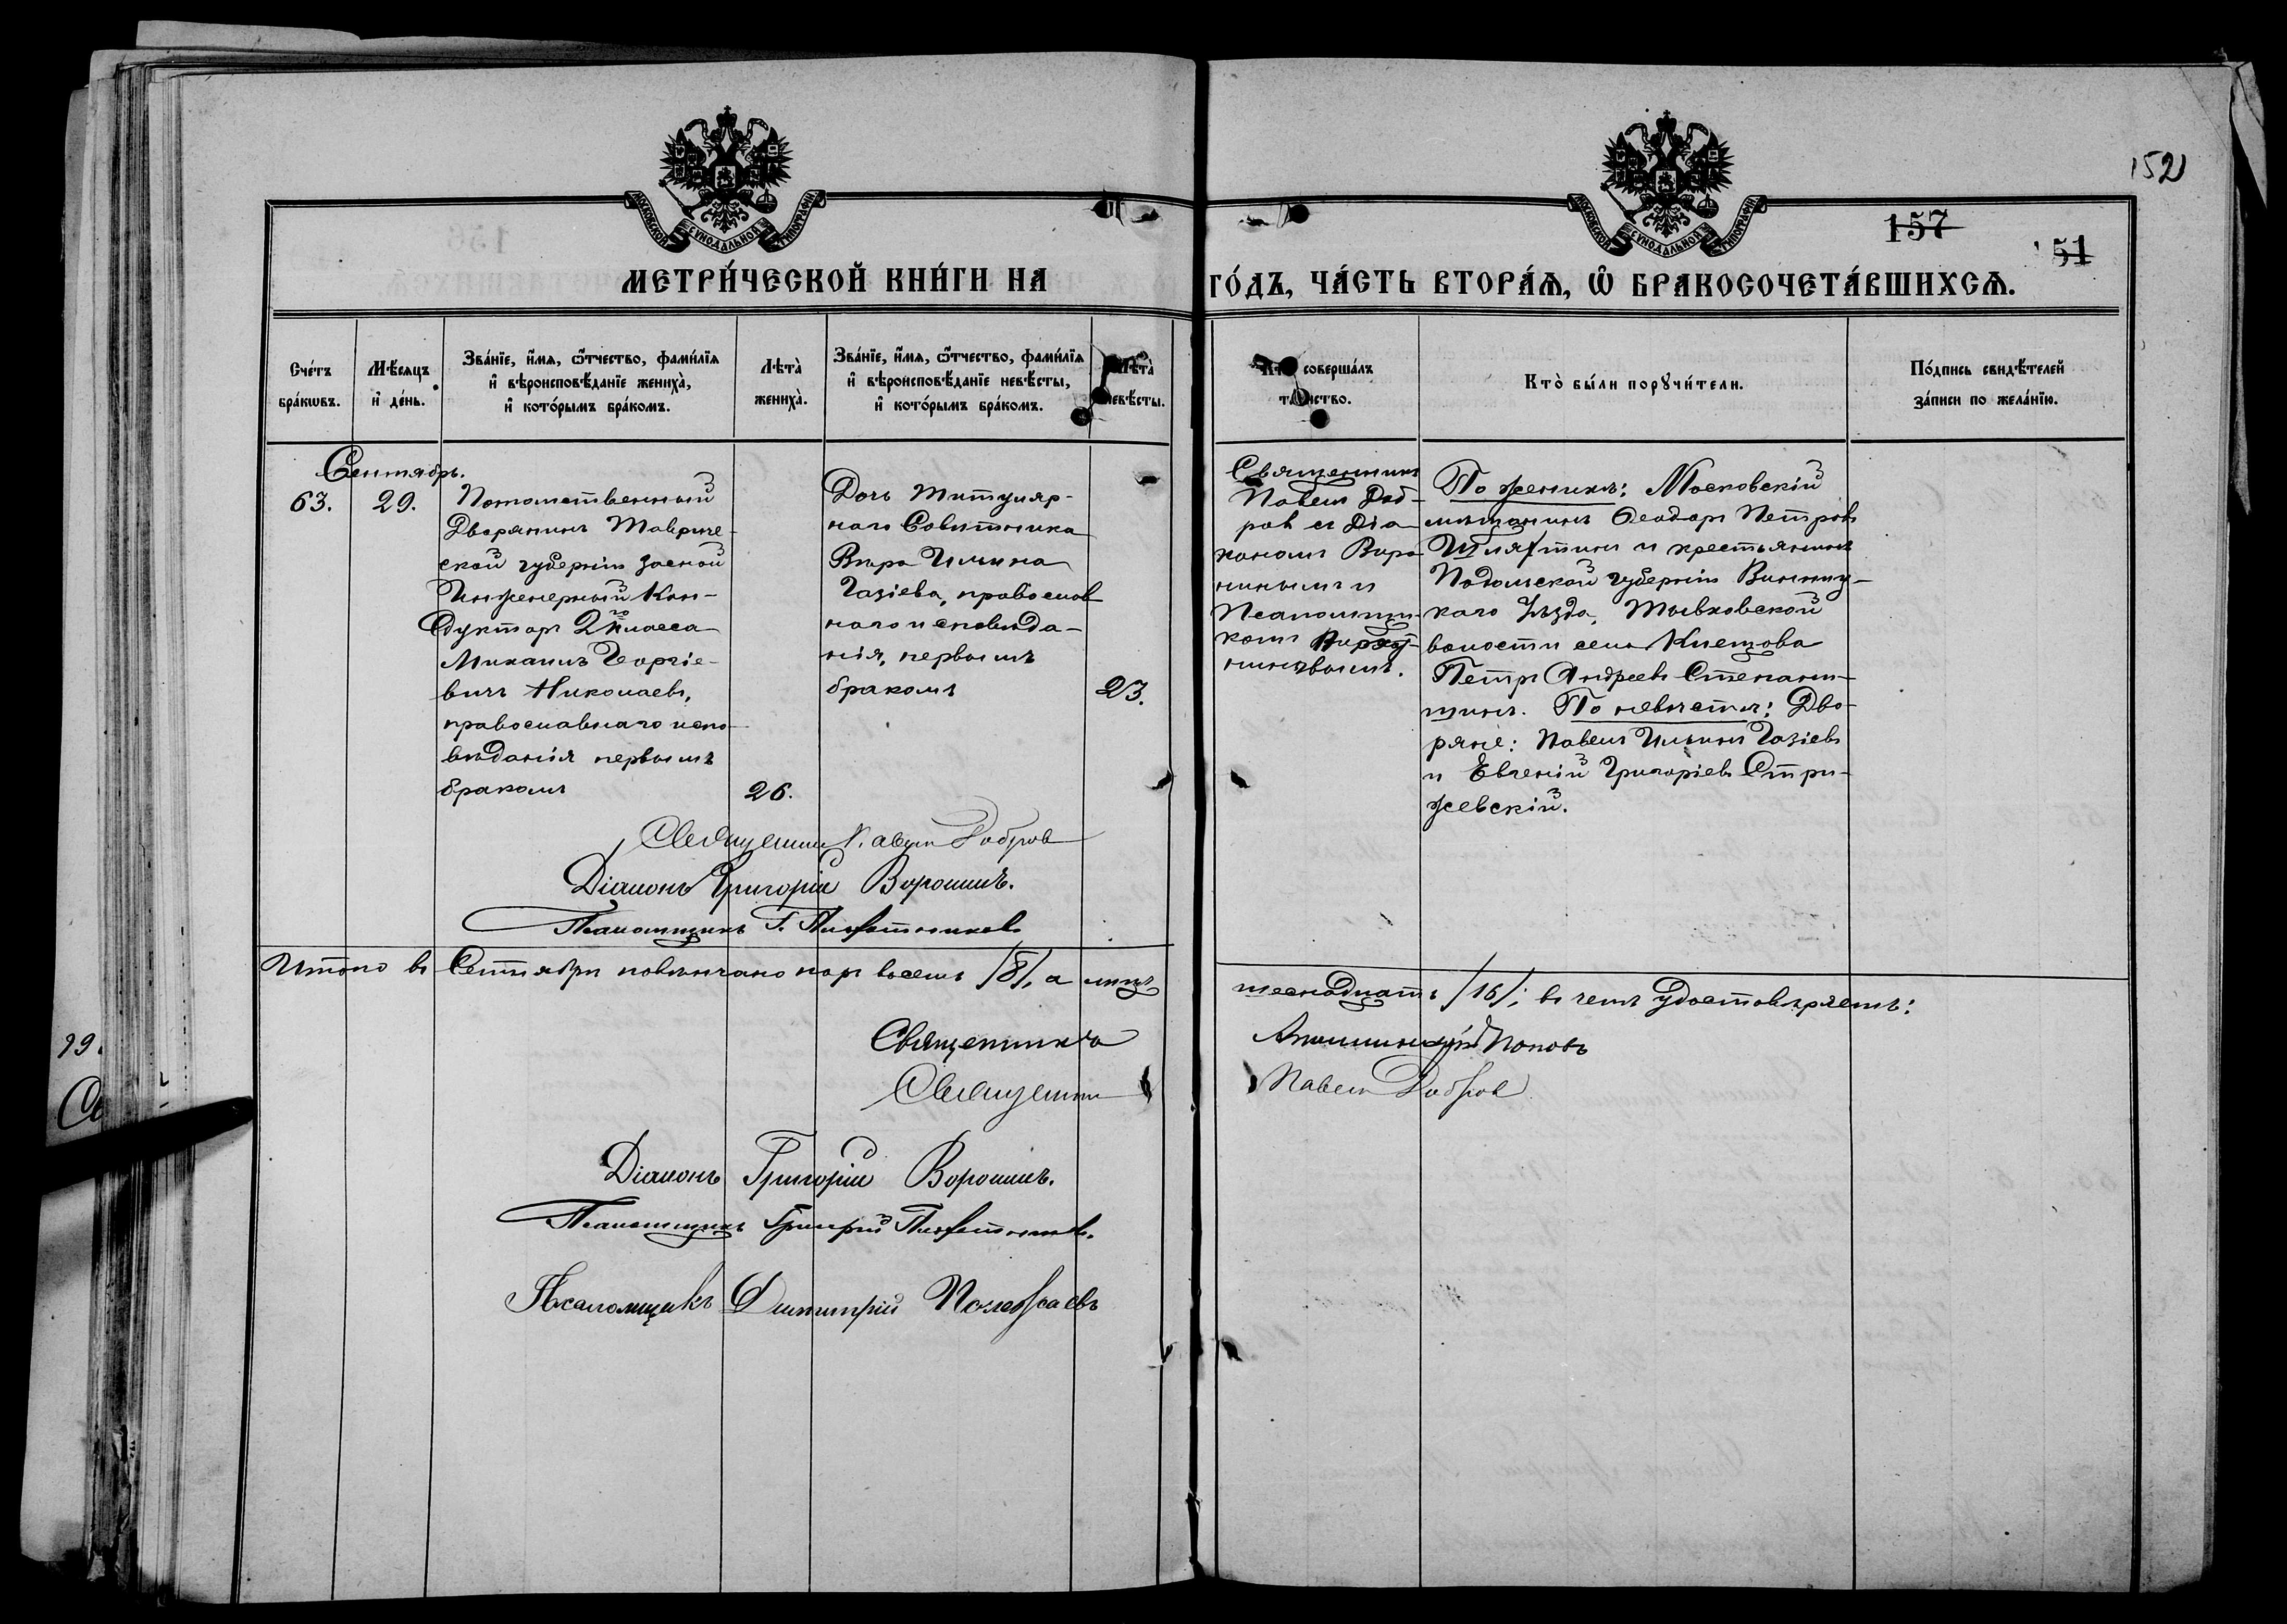 152
157
151
МОСКОВСКОЙ СѴНОДАЛЬНОЙ ТИПОГРАФІИ
МОСКОВСКОЙ СѴНОДАЛЬНОЙ ТИПОГРАФІИ
МЕТРИ́ЧЕСКОЙ КНИ́ГИ НА ГО́ДЪ, ЧА́СТЬ ВТОРА́Ѧ, Ѽ БРАКОСОЧЕТА́ВШИХСѦ.
Сче́тъ бра́кѡвъ.
Мѣ́сяцъ и҆ де́нь.
Зва́нїе, и҆́мя, ѻ҆́тчество, фами́лїя
и҆ вѣроисповѣ́данїе жениха̀,
и҆ кото́рымъ бра́комъ.
Лѣта̀ жениха̀.
Зва́нїе, и҆́мя, ѻ҆́тчество, фами́лїя
и҆ вѣроисповѣ́данїе невѣ́сты,
и҆ кото́рымъ бра́комъ.
Лѣта̀ невѣ́сты.
Кто̀ соверша́лъ
таинство.
Кто̀ бы́ли порꙋчи́тели.
По́дпись свидѣ́телей
за́писи по жела́нїю.
Сентябрь.
63.
29.
Потомственный
Дворянинъ Тавриче-
ской губерніи
Инженерный Кон-
дукторъ 2го класса
Михаилъ Георгіе-
вичъ Николаевъ,
православнаго испо-
вѣданія первымъ
бракомъ
26.
Дочь Титуляр-
наго Совѣтника
Вѣра Ильина
Газіева, православ
наго исповѣда-
нія, первымъ
бракомъ
23.
Священникъ
Павелъ Доб-
ровъ съ Діа
кономъ Воро
нинымъ и
Псаломщи-
комъ
По женихѣ: Московскій
мѣщанинъ Ѳеодоръ Петровъ
и крестьянинъ
Подольской губерніи Винниц-
каго Уѣзда, Тывровской
волости села
Петръ Андреевъ Степани-
щинъ. По невѣстѣ: Дво-
ряне: Павелъ Ильинъ Газіевъ
и Евгеній Григорьевъ Стри-
жевскій.
Священникъ Павелъ Добровъ
Діаконъ Григорій Воронинъ.
Псаломщикъ Г.
Итого въ Сентябрѣ повѣнчано паръ восемь /8/, а лицъ шеснадцать /16/; въ чемъ удостовѣряемъ:
Священникъ Поповъ
Священникъ Павелъ Добровъ
Діаконъ Григорій Воронинъ.
Псаломщикъ Григорій
Псаломщикъ Димитрій Полебаевъ